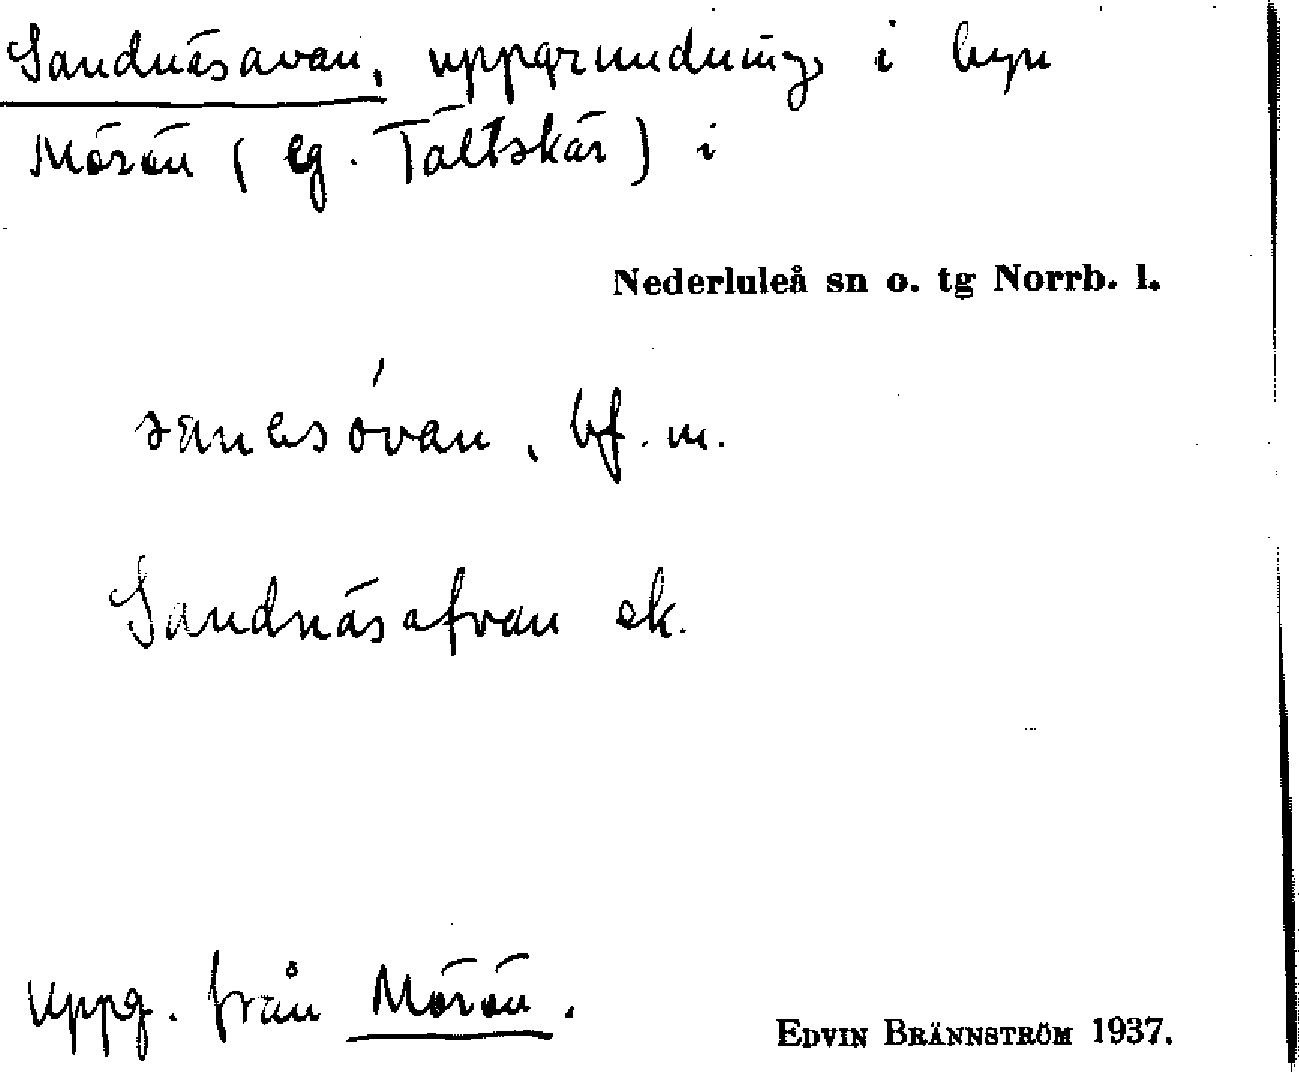 Sandnäsavan, uppgrundning i byn
Mörön (eg. Tältskär) i
Nederluleå sn o. tg Norrb. l.
bf. m.
Sandnäsafvan ek.
Uppg. från Mörön.
EDVIN BRÄNNSTRÖM 1937.